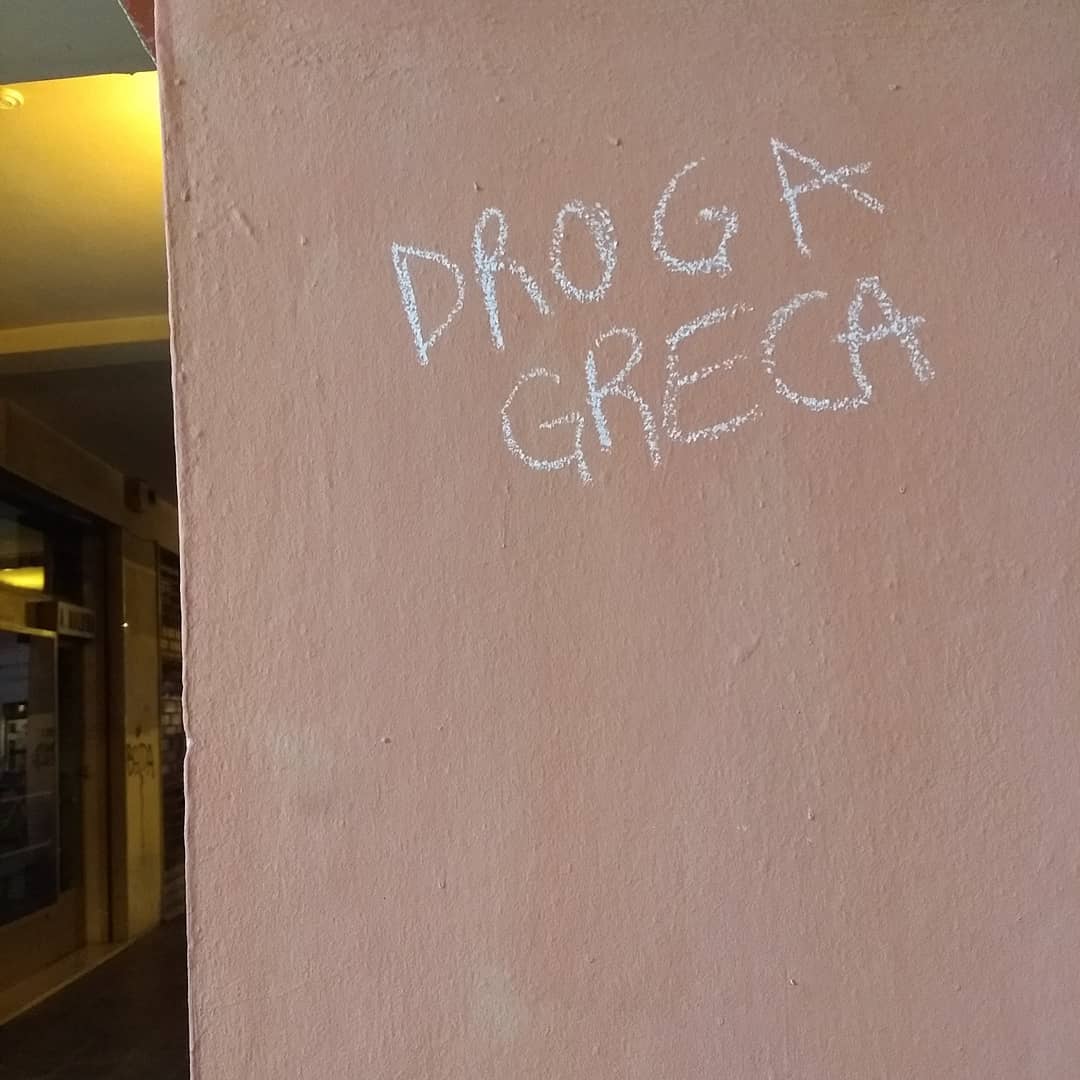 DROGA
GRECA